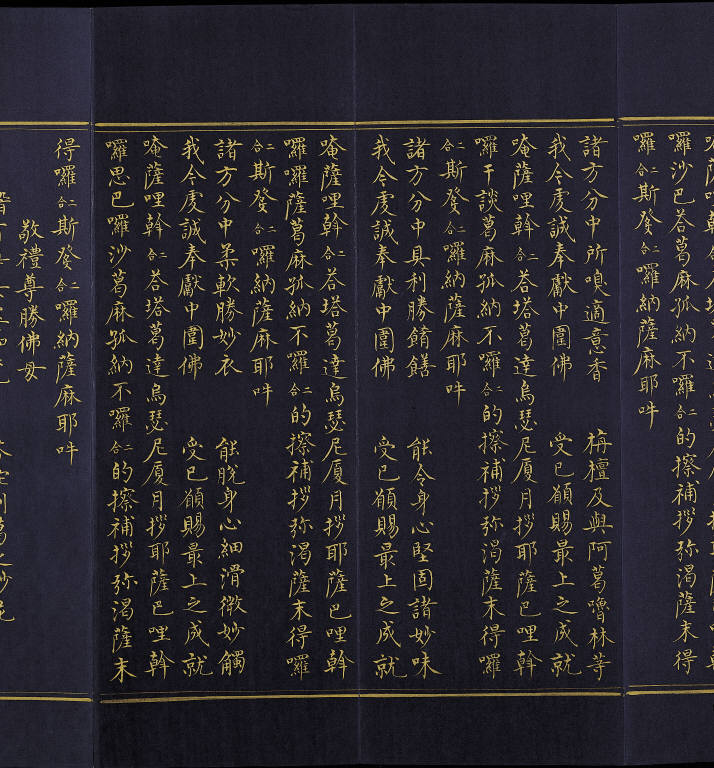 囉沙巴荅葛麻孤納不囉二合的擦補拶弥渴薩末得
囉二合斯癹二合囉納薩麻耶吽
諸方分中所嗅適意香 栴檀及與阿葛嚕林等
我今虔誠奉獻中圍佛 受已願賜最上之成就
唵薩哩斡二合荅塔葛達烏瑟尼廈月拶耶薩巴哩斡
囉干談葛麻孤納不囉二合的擦補拶弥渴薩末得囉
二合斯癹二合囉納薩麻耶吽
諸方分中具利勝餚饍 能令身心堅固諸妙味
我今虔誠奉獻中圍佛 受已願賜最上之成就
唵薩哩斡二合荅塔葛達烏瑟尼廈月拶耶薩巴哩斡
囉囉薩葛麻孤納不囉二合的擦補拶弥渴薩末得囉
二合斯癹二合囉納薩麻耶吽
諸方分中柔軟勝妙衣 能脫身心細滑微妙觸
我今虔誠奉獻中圍佛 受已願賜最上之成就
唵薩哩斡二合荅塔葛達烏瑟尼廈月拶耶薩巴哩斡
囉思巴囉沙葛麻孤納不囉二合的擦補拶弥渴薩末
得囉二合斯癹二合囉納薩麻耶吽
敬禮尊勝佛母